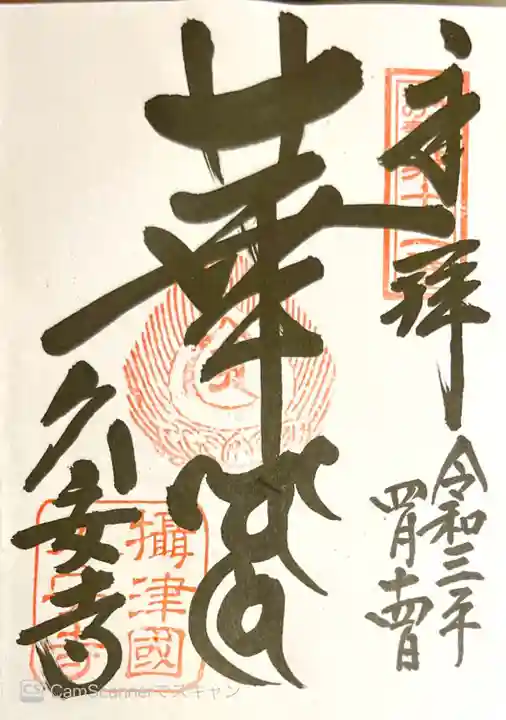 奉拝
令和三年
四月十四日
華
久安寺
攝津國
CamScannerでスキャン